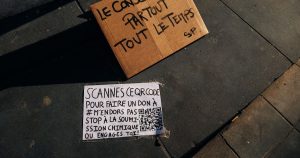 LE CONSE
PARTOUT
TOUT LE TEMPS
S.P.
SCANNES CE QR CODE
POUR FAIRE UN DON À
#M'ENDORS PAS
STOP À LA SOUMI-
SSION CHIMIQUE
OU ENGAGES TOI!